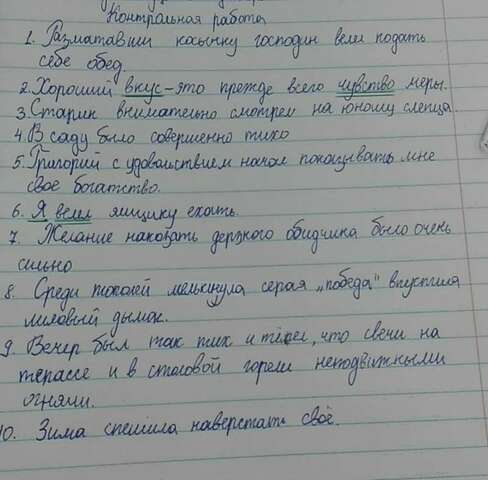 Контрольная работа
1. Разматавши косынку господин велел подать
себе обед.
2. Хороший вкус – это прежде всего чувство меры.
3. Старик внимательно смотрел на юношу слепца.
4. В саду было совершенно тихо
5. Григорий с удовольствием начал показывать мне
своё богатство.
6. Я велел ямщику ехать.
7. Желание наказать дерзкого обидчика было очень
сильно
8. Среди тополей мелькнула серая „победа" впустила
лиловый дымок.
9. Вечер был так тих и тёпел, что свечи на
терассе и в столовой горели неподвижными
огнями.
10. Зима спешила наверстать своё.